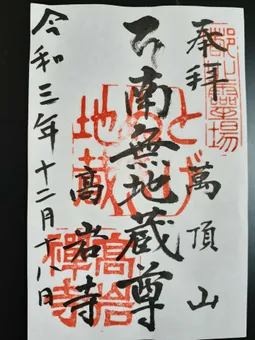 奉拝
萬頂山
南無地蔵尊
高岩寺
令和三年十二月十八日
靈場
とげ
地蔵
高岩
禪寺